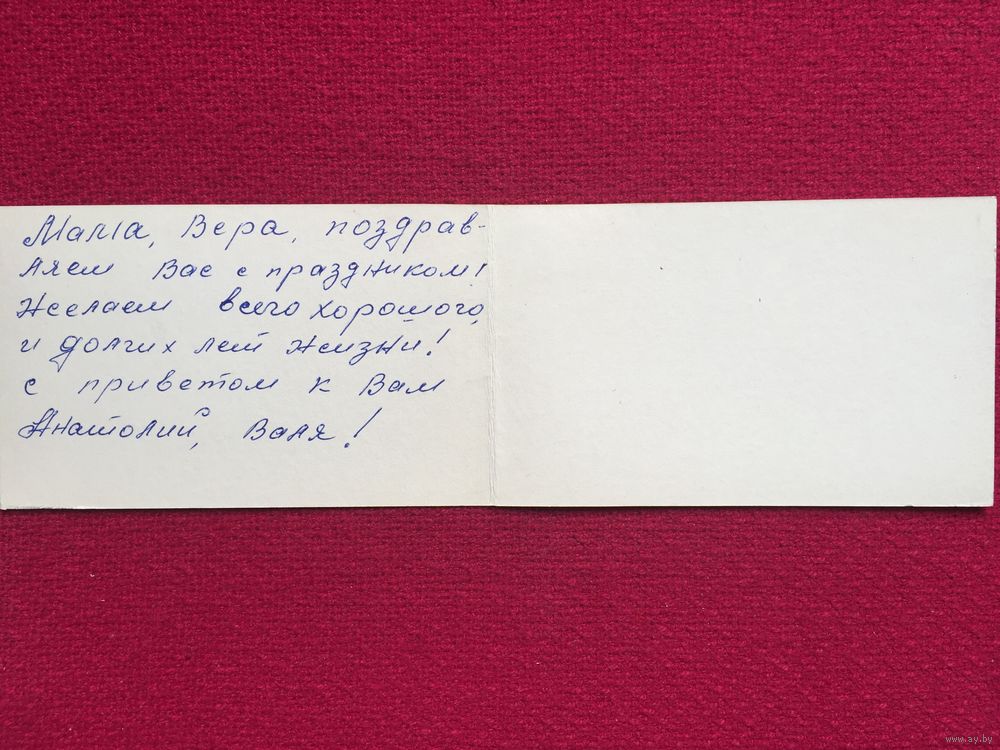 Мама, Вера, поздрав-
ляем Вас с праздником!
Желаем всего хорошого,
и долгих лет жизни!
с приветом к Вам
Анатолий, Валя!
www.ay.by